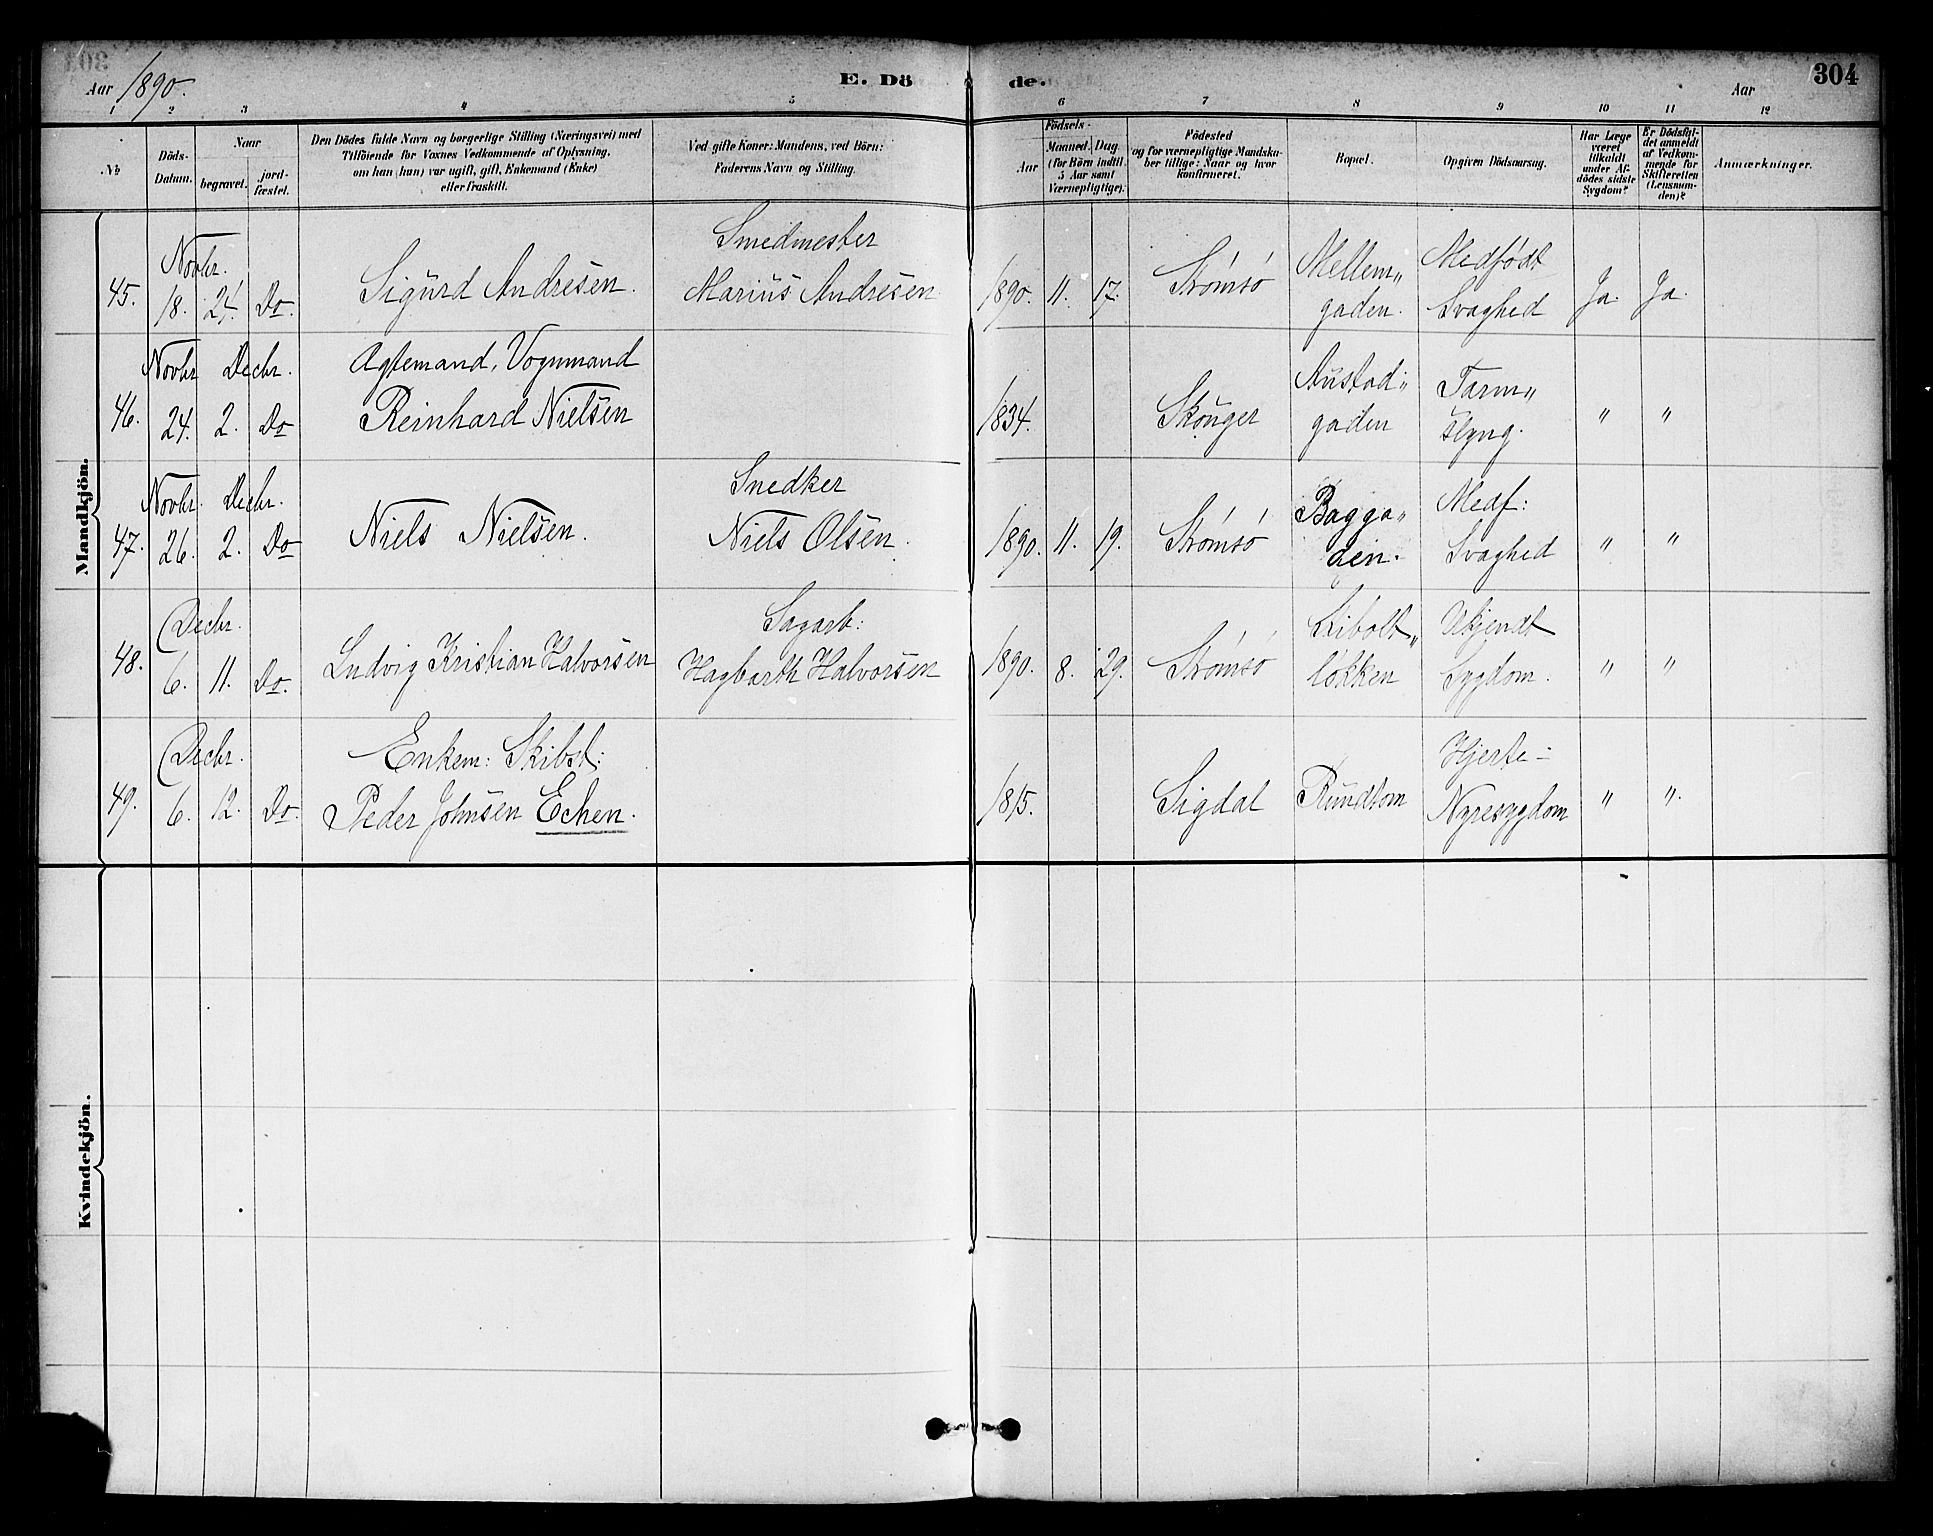 Aar 1890.
E. Dö
de.
Aar
304
1 2 3 4 5 6 7 8 9 10 11 12
No
Döds-Datum.
Naar
begravet.
jord-fæstet.
Den Dödes fulde Navn og borgerlige Stilling (Næringsvei) med
Tilföiende for Voxnes Vedkommende af Oplysning,
om han (hun) var ugift, gift, Enkemand (Enke)
eller fraskilt.
Ved gifte Koner: Mandens, ved Börn:
Faderens Navn og Stilling.
Födsels-
Aar
Maaned. Dag
(for Börn indtil
5 Aar samt
Værnepligtige).
Födested
og for værnepligtige Mandska-
ber tillige: Naar og hvor
konfirmeret.
Bopæl.
Opgiven Dödsaarsag.
Har Læge
været
tilkaldt
under Af-
dödes sidste
Sygdom?
Er Dödsfal-
det anmeldt
af Vedkom-
mende for
Skifteretten
(Lensman-
den)?
Anmærkninger.
Mandkjön.
Novbr. Smedmester Mellem„ Medfødt
45. 18. 24. Do. Sigurd Andresen. Marius Andresen 1890. 11. 17. Strømsø gaden. Svaghed Ja. Ja.
Novbr Decbr. Agtemand, Vognmand Austad„ Tarm„
46. 24. 2. Do Reinhard Nielsen 1834. Skouger gaden slyng. „ „
Novbr. Decbr. Snedker Bagga„ Medf:
47. 26. 2. Do Niels Nielsen. Niels Olsen. 1890. 11. 19. Strømsø den. Svaghed „ „
Decbr. Sagarb: Ukjendt
48. 6. 11. Do. Ludvig Kristian Halvorsen Hagbarth Halvorsen 1890. 8. 29. Strømsø løkken Sygdom. „ „
Decbr. Enkem: Skibst: Hjerte-
49. 6. 12. Do. Peder Johnsen Echen. 1815. Sigdal Rundtom Nyresygdom „ „
Kvindekjön.